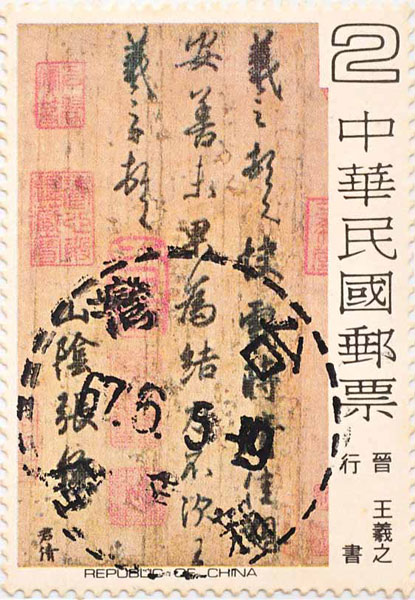 2
中華民國郵票
晉 王羲之
行書
羲之頓首快雪時晴佳想
安善未果為結力不次王
羲之頓首
山陰張侯
君倩
REPUBLIC OF CHINA